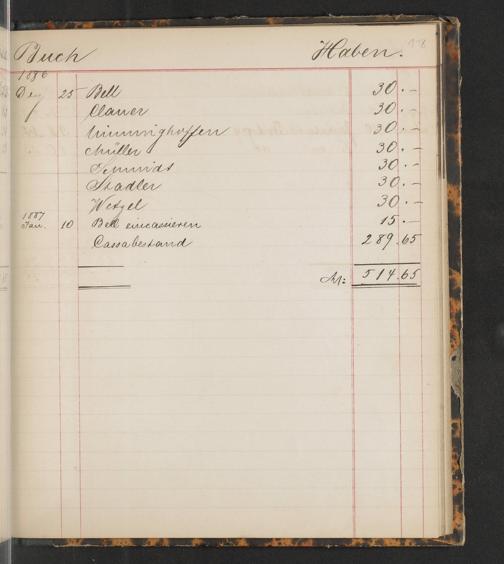 Buch Haben. 118
1886
Dez 25 Bell 30.-
f Clauer 30.-
30.-
Müller 30.-
Schmidt 30.-
Stadler 30.-
Wetzel 30.-
1887
Jan. 10 Bell eincassieren 15.-
Cassabestand 289.65
M: 514.65